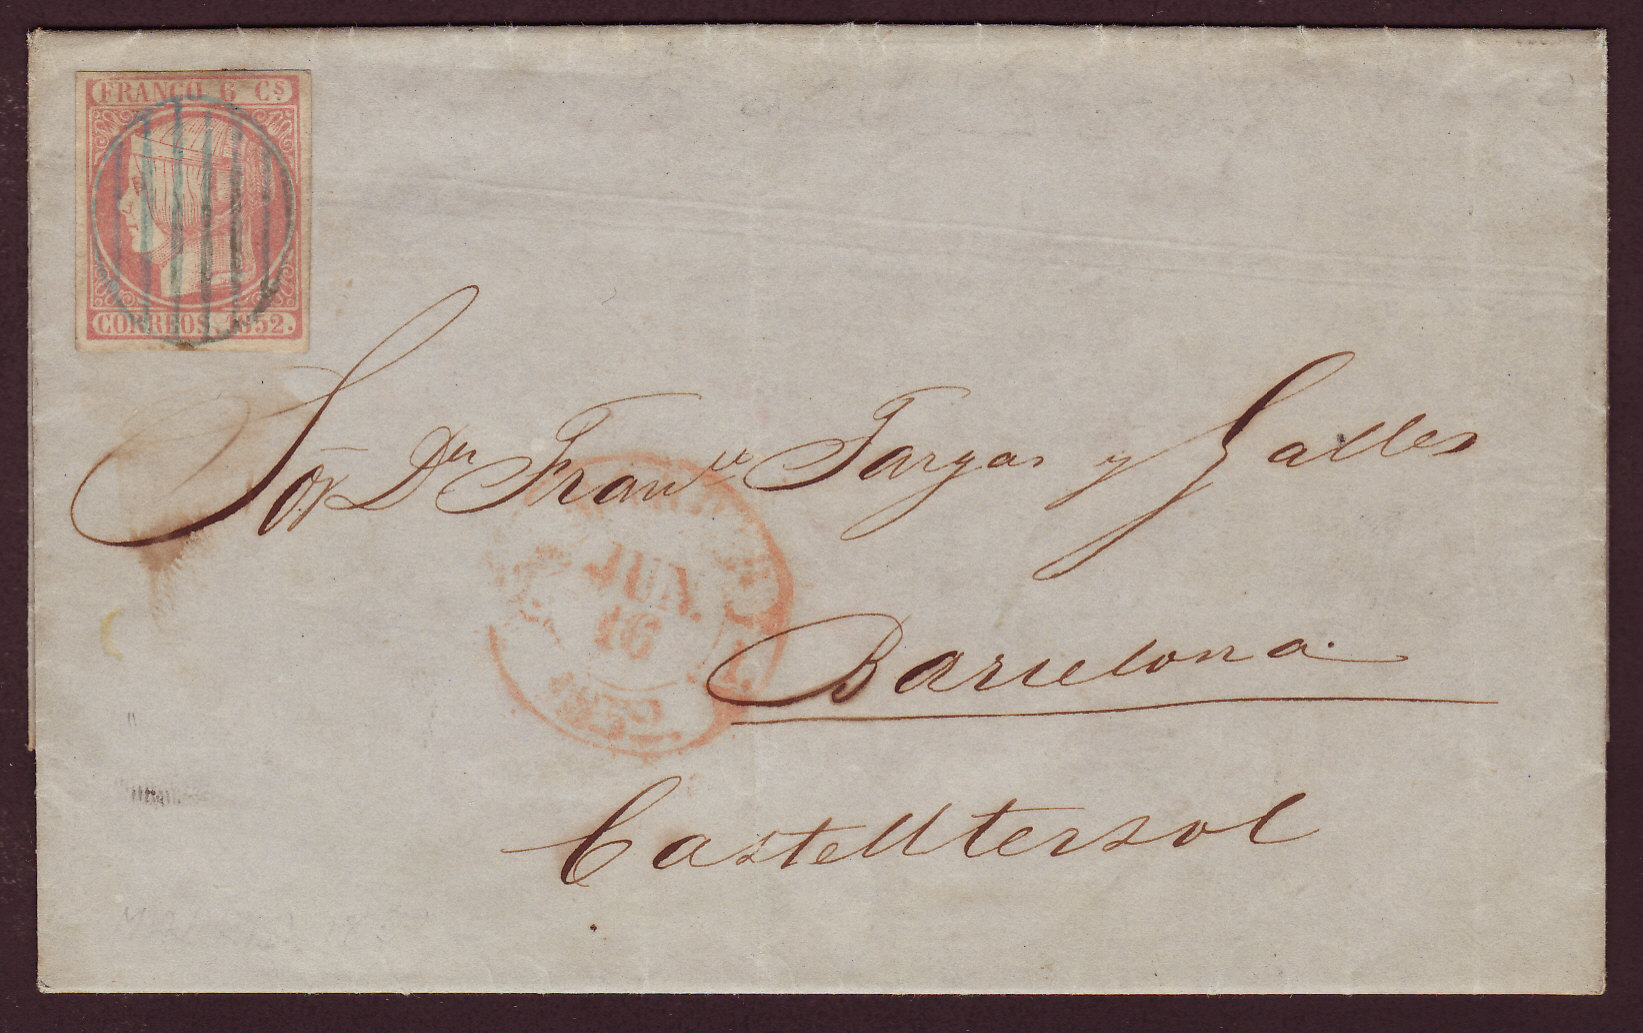 FRANCO 6 CS
CORREOS. 1852.
Sor Dn Franco Fargas y Galles
JUN.
16
1852
Barcelona.
Castelltersol